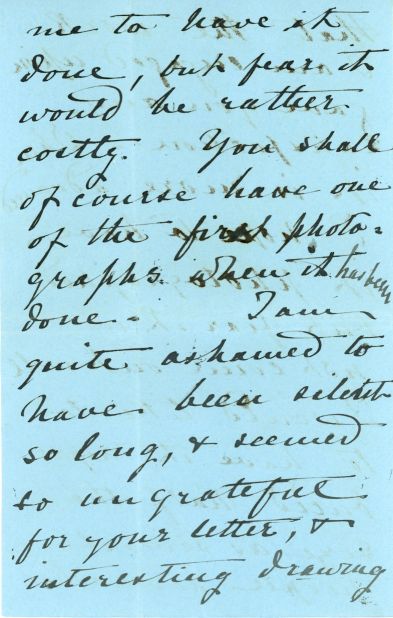 me to have it
done, but fear it
would be rather
costly. You shall
of course have one
of the first photo=
graphs. when it has been
done - I am
quite ashamed to
have been silent
so long, & seemed
so ungrateful
for your letter, &
interesting drawing